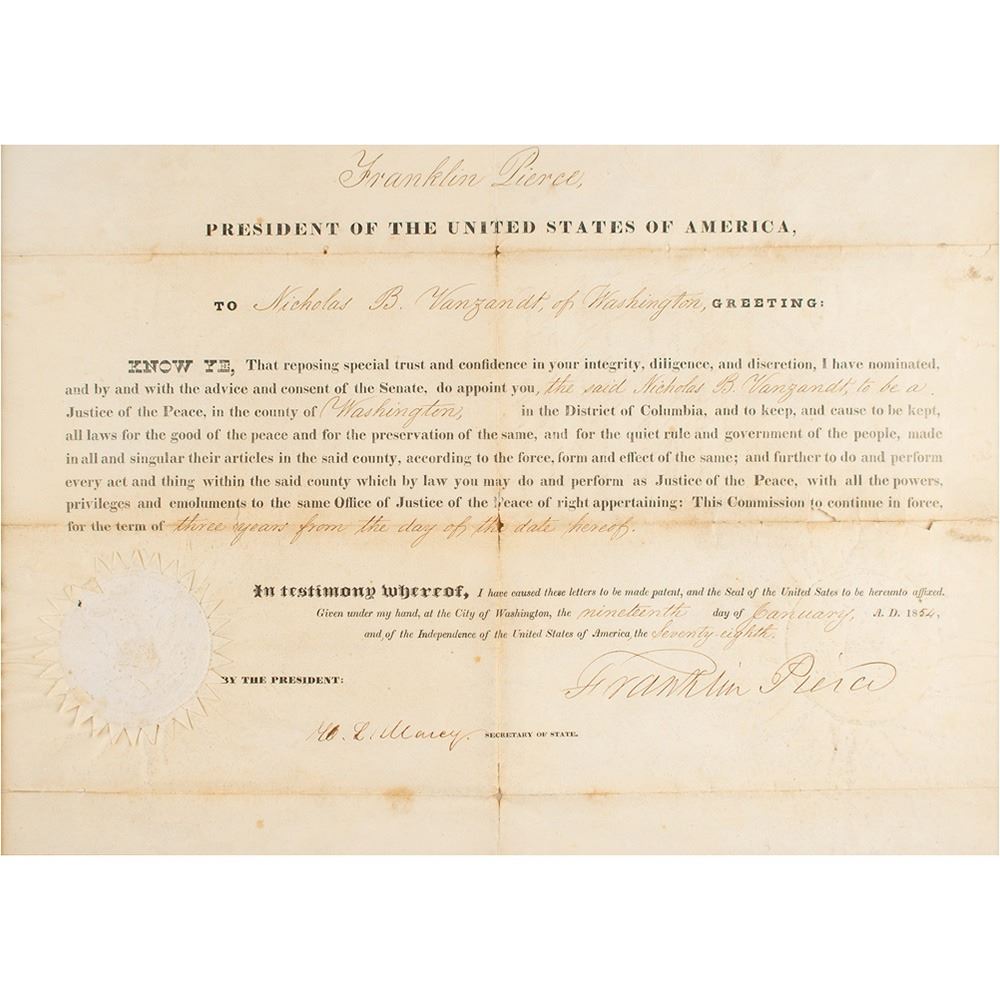 Franklin Pierce,
PRESIDENT OF THE UNITED STATES OF AMERICA,
TO Nicholas B. Vanzandt, of Washington, GREETING:
KNOW YE, That reposing special trust and confidence in your integrity, diligence, and discretion, I have nominated,
and by and with the advice and consent of the Senate, do appoint you, the said Nicholas B. Vanzandt, to be a
Justice of the Peace, in the county of Washington, in the District of Columbia, and to keep, and cause to be kept,
all laws for the good of the peace and for the preservation of the same, and for the quiet rule and government of the people, made
in all and singular their articles in the said county, according to the force, form and effect of the same; and further to do and perform
every act and thing within the said county which by law you may do and perform as Justice of the Peace, with all the powers,
privileges and emoluments to the same Office of Justice of the Peace of right appertaining: This Commission to continue in force,
for the term of three years from the day of the date hereof.
In testimony whereof, I have caused these letters to be made patent, and the Seal of the United Sates to be hereunto affixed.
Given under my hand, at the City of Washington, the nineteenth day of January, A. D. 1854,
and of the Independence of the United States of America, the Seventy-eighth.
BY THE PRESIDENT: Franklin Pierce
W. L. Marcy. SECRETARY OF STATE.